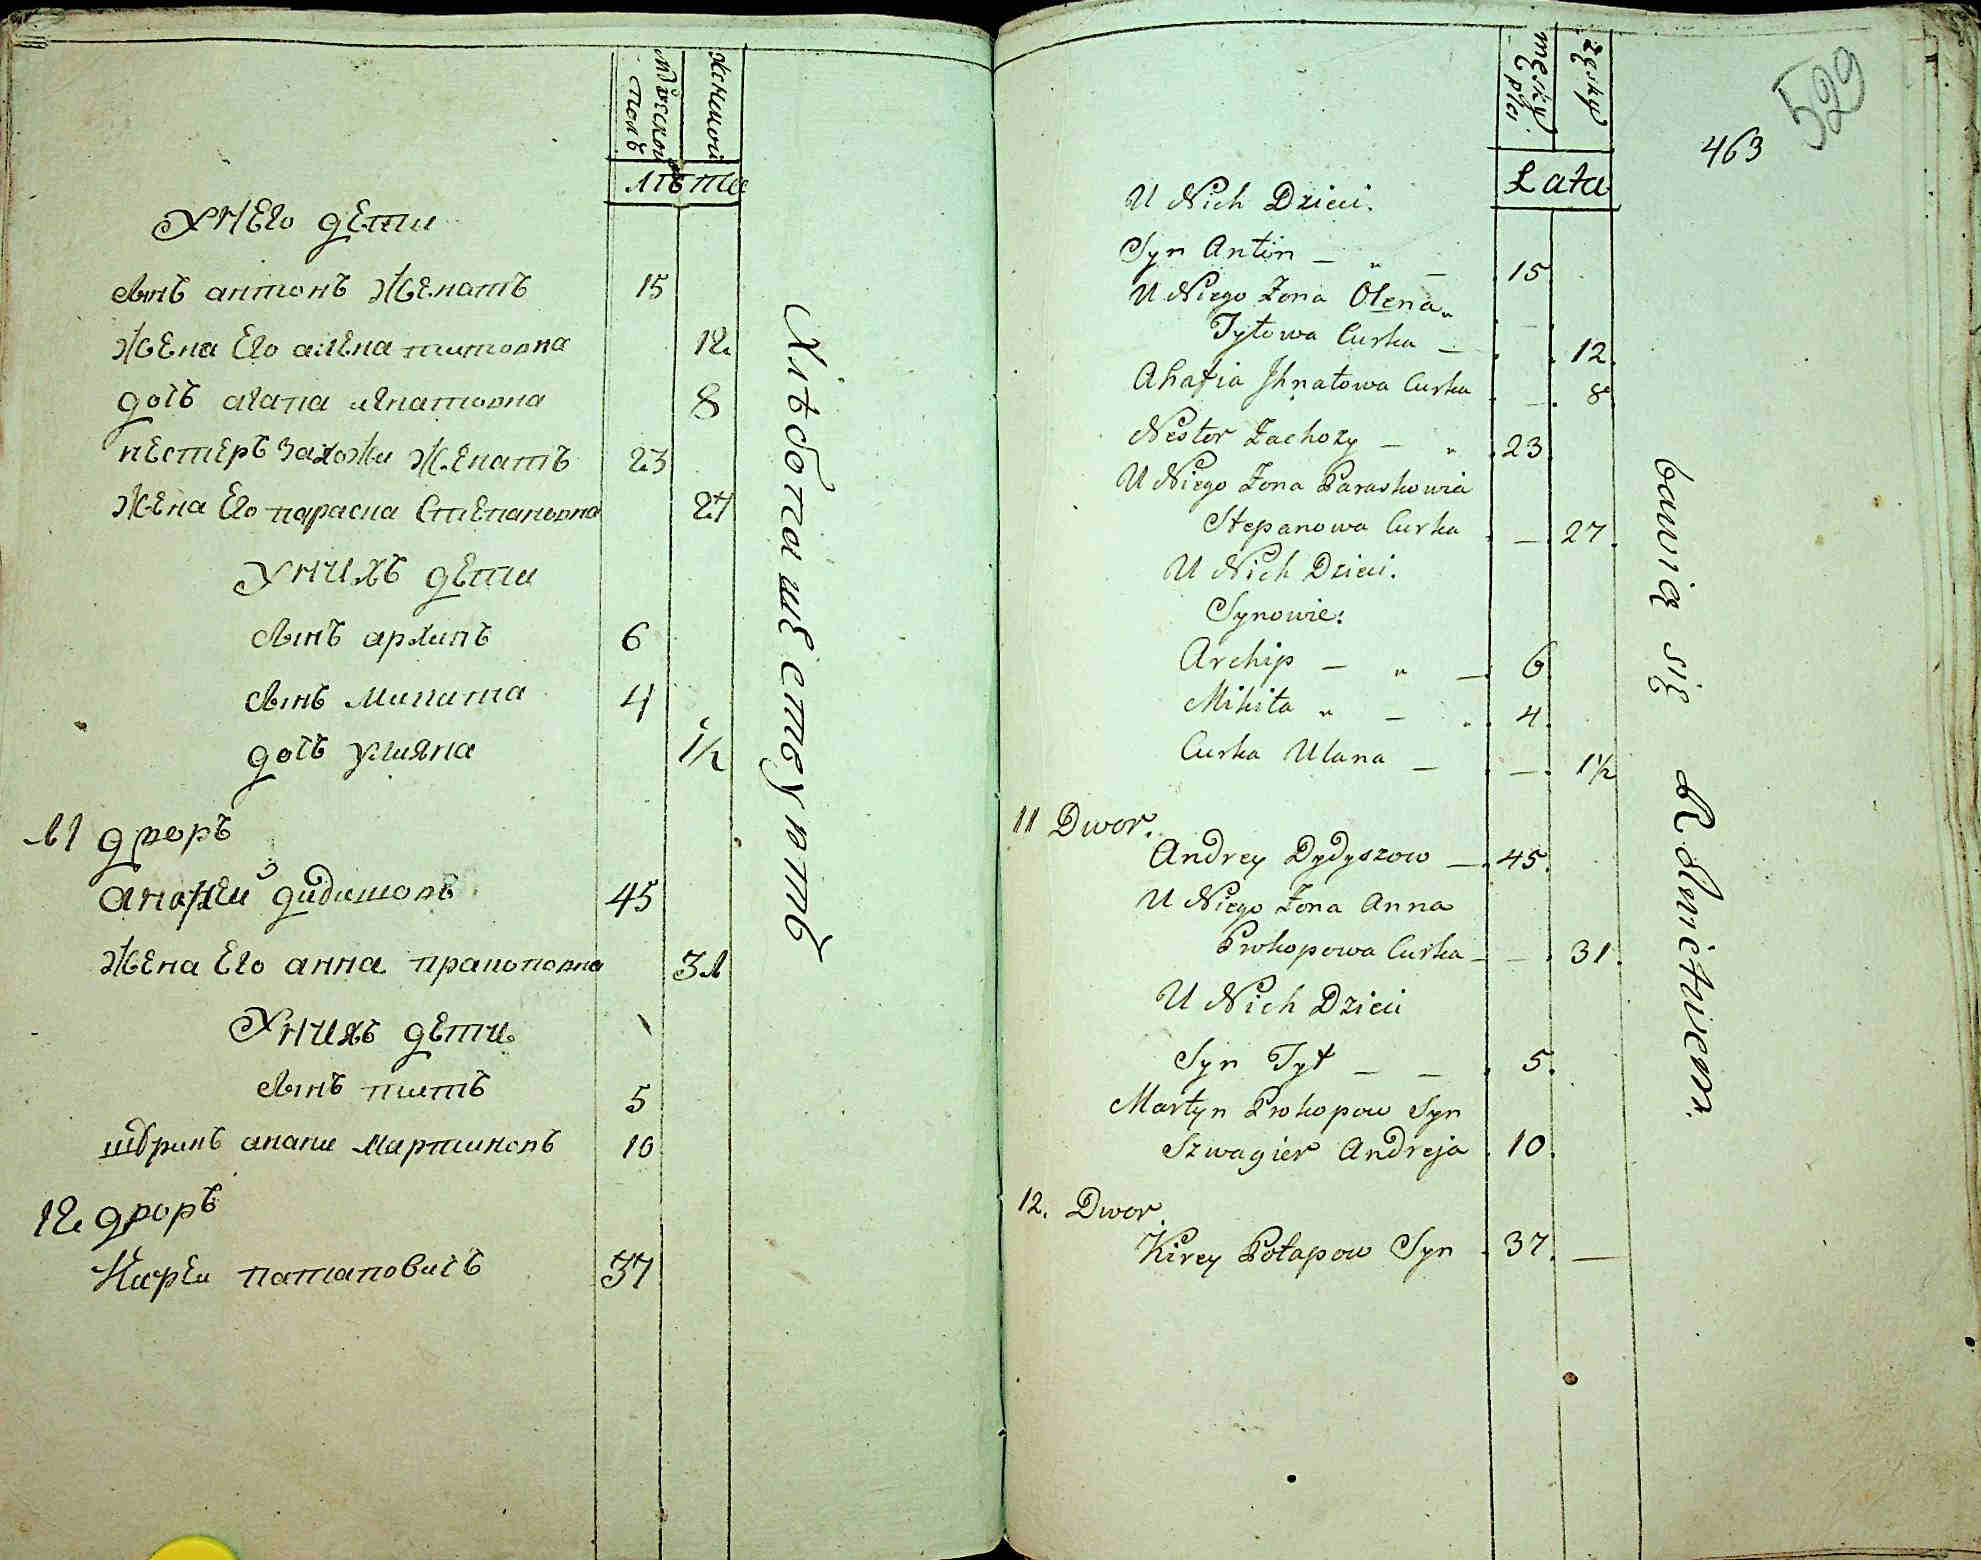 мужской
полъ
женской
лѣта
У него дети
сынъ антонъ женатъ 15
жена Его алена титовна 12
дочъ агапа игнатовна 8
нестеръ захожи женатъ 23
жена Его параска Степановна 27
У нихъ дети
сынъ архипъ 6
сынъ микита 4
дочъ улияна 1½
11 дворъ
андреи дидишовъ 45
жена Его анна пракоповна 31
У нихъ дети
сынъ титъ 5
швринъ Мартиновъ 10
12 дворъ
Киреи патаповичъ 37
Хлѣбопашествуютъ
męsky płci
żęsky
Lata
463
529
U Nich Dzieci.
Syn Anton — „ — 15
U Niego Żona Olena „
Tytowa Curka — 12.
Ahafia Jhnatowa Curka — 8
Nestor Zachoży — „ 23
U Niego Żona Paraskowia
Stepanowa Curka — 27.
U Nich Dzieci.
Synowie:
Archip — „ — 6
Mikita „ — 4.
Curka Ulana — — 1½
11 Dwor.
Andrey Dydyszow — 45.
U Niego Żona Anna
Prokopowa Curka — — 31.
U Nich Dzieci
Syn Tyt — — 5.
Martyn Prokopow Syn
Szwagier Andreja 10.
12. Dwor.
Kirey Potapow Syn 37. —
bawią się Rolnictwem.